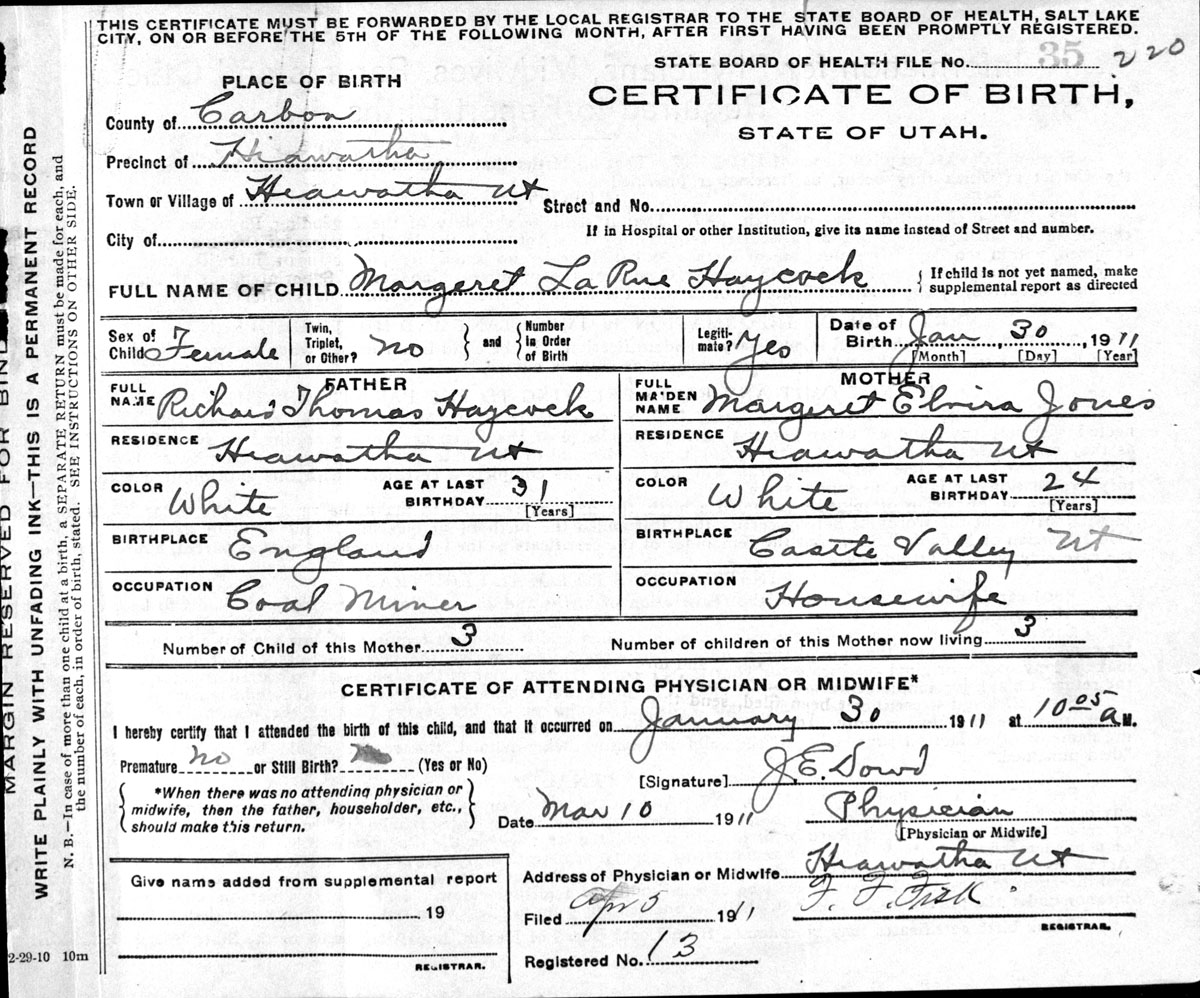 THIS CERTIFICATE MUST BE FORWARDED BY THE LOCAL REGISTRAR TO THE STATE BOARD OF HEALTH, SALT LAKE
CITY, ON OR BEFORE THE 5TH OF THE FOLLOWING MONTH, AFTER FIRST HAVING BEEN PROMPTLY REGISTERED.
STATE BOARD OF HEALTH FILE No. 35 220
PLACE OF BIRTH
CERTIFICATE OF BIRTH,
STATE OF UTAH.
County of Carbon
Precinct of Hiawatha
Town or Village of Hiawatha Ut Street and No.
City of If in Hospital or other Institution, give its name instead of Street and number.
FULL NAME OF CHILD Margeret LaRue Haycock { If child is not yet named, make
supplemental report as directed
Sex of Child Female Twin, Triplet, or Other? No } and { Number in Order of Birth Legiti-mate? Yes Date of Birth Jan 30, 1911
[Month] [Day] [Year]
FATHER MOTHER
FULL NAME Richard Thomas Haycock FULL MAIDEN NAME Margeret Elvira Jones
RESIDENCE Hiawatha Ut RESIDENCE Hiawatha Ut
COLOR White AGE AT LAST BIRTHDAY 31 [Years] COLOR White AGE AT LAST BIRTHDAY 24 [Years]
BIRTHPLACE England BIRTHPLACE Castle Valley Ut
OCCUPATION Coal Miner OCCUPATION Housewife
Number of Child of this Mother 3 Number of children of this Mother now living 3
CERTIFICATE OF ATTENDING PHYSICIAN OR MIDWIFE*
I hereby certify that I attended the birth of this child, and that it occurred on January 30 1911 at 10 05 a M.
Premature no or Still Birth? No (Yes or No)
[Signature] J. E. Dowd
*When there was no attending physician or
midwife, then the father, householder, etc.,
should make this return.
Date Mar 10 1911 Physician
[Physician or Midwife]
Address of Physician or Midwife Hiawatha Ut
Give name added from supplemental report
19
REGISTRAR.
Filed Apr 5 1911 F. F. Fisk
REGISTRAR.
Registered No. 13
2-29-10 10m
MARGIN RESERVED FOR BIND
WRITE PLAINLY WITH UNFADING INK—THIS IS A PERMANENT RECORD
N. B.—In case of more than one child at a birth, a SEPARATE RETURN must be made for each, and
the number of each, in order of birth, stated. SEE INSTRUCTIONS ON OTHER SIDE.